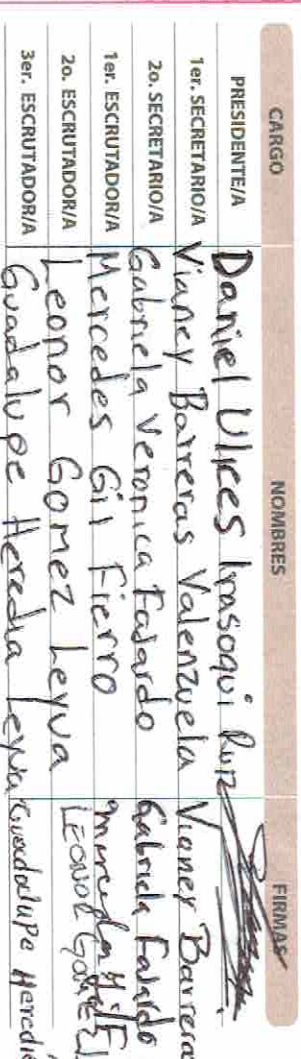 CARGO NOMBRES FIRMAS
PRESIDENTE/A Daniel Ulices Irasoqui Ruiz
1er. SECRETARIO/A Vianey Barreras Valenzuela Vianey Barrera
2o. SECRETARIO/A Gabriela Veronica Fajardo Gabriela Fajardo
1er. ESCRUTADOR/A Mercedes Gil Fierro Mercedes
2o. ESCRUTADOR/A Leonor Gomez Leyva LEONOR GOMEZ
3er. ESCRUTADOR/A Guadalupe Heredia Leyva Guadalupe Heredia